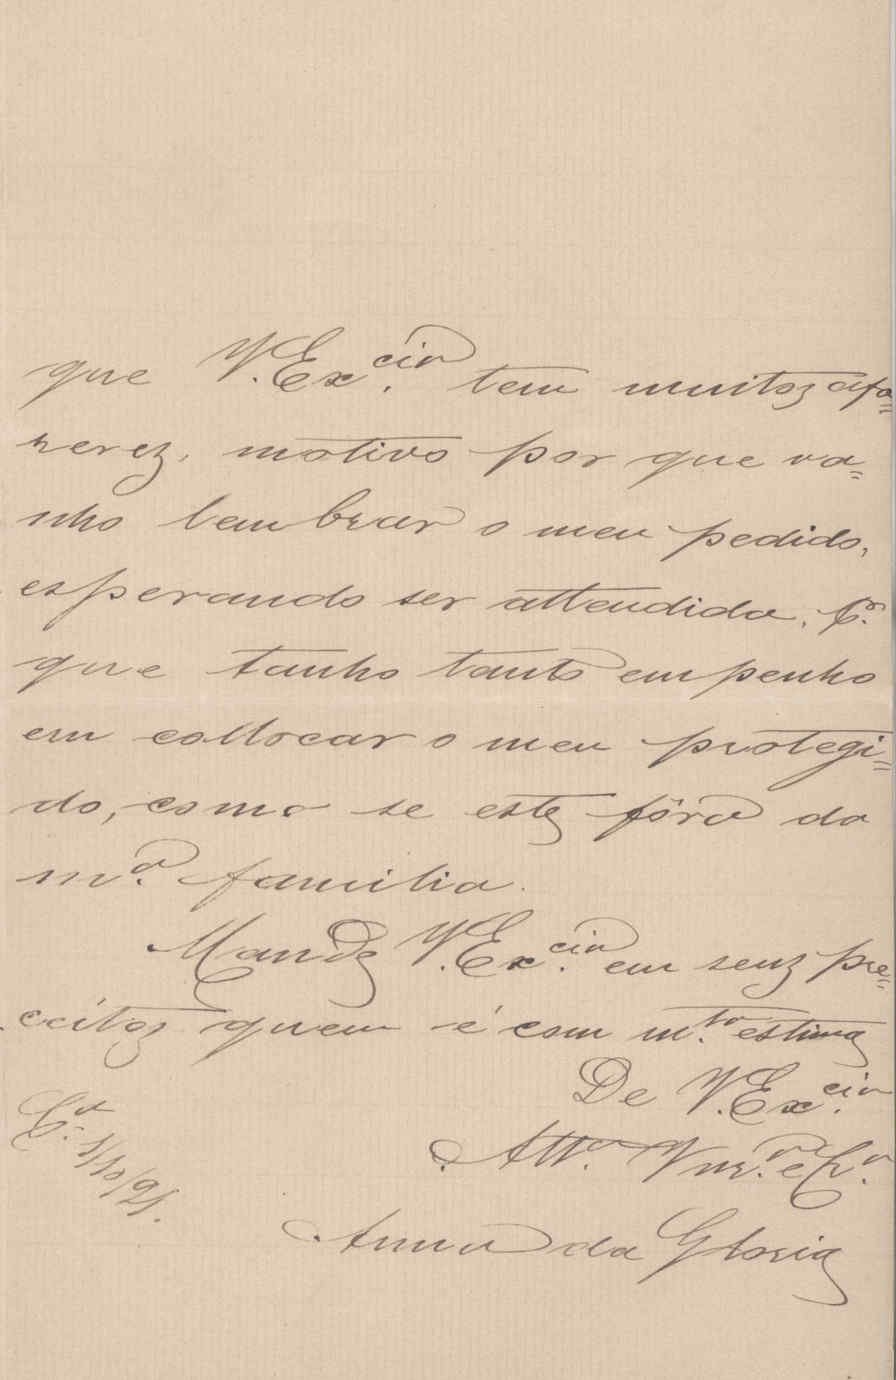 que V. Ex.cia tem muitos afa=
zerez, motivo por que va=
nho lembrar o meu pedido,
esperando ser attendida. P.r
que tanho tanto empenho
em collocar o meu protegi=
do, como se este fôra da
m.a familia.
Mande V. Ex.cia em seus pre=
ceitos quem é com m.ta estima
De V. Ex.cia
Att.a Vnr.a e Cr.a
Anna da Gloria
C.a 1/10/91.